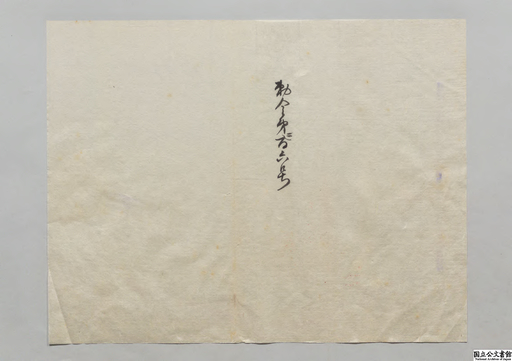 勅令第二百六号
国立公文書館
National Archives of Japan